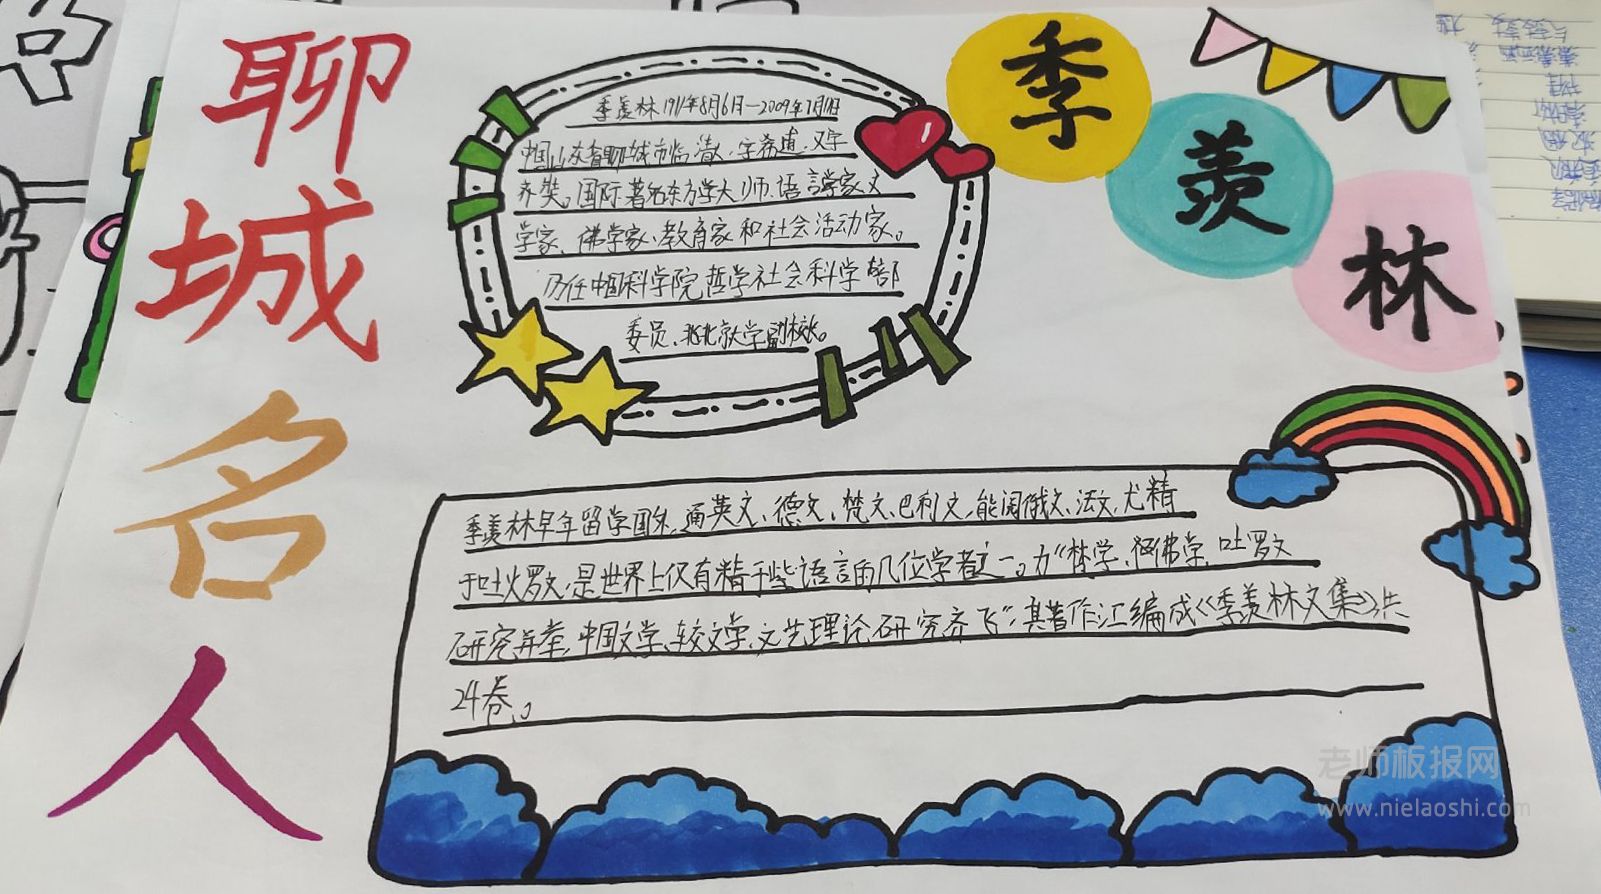 聊城名人
季羡林
季羡林1911年8月6日—2009年7月11日
中国山东省聊城市临清人,字希逋,又字
齐奘。国际著名东方学大师、语言学家、文
学家、佛学家、教育家和社会活动家。
历任中国科学院哲学社会科学部
委员、北北京大学副校长。
季羡林早年留学国外,通英文、德文、梵文、巴利文,能阅俄文、法文,尤精
于吐火罗文,是世界上仅有精于些语言的几位学者之一。为“梵学、佛学、吐罗文
研究并举,中国文学、较文学、文艺理论研究齐飞”,其著作汇编成《季羡林文集》,共
24卷。
老师板报网
www.nielaoshi.com